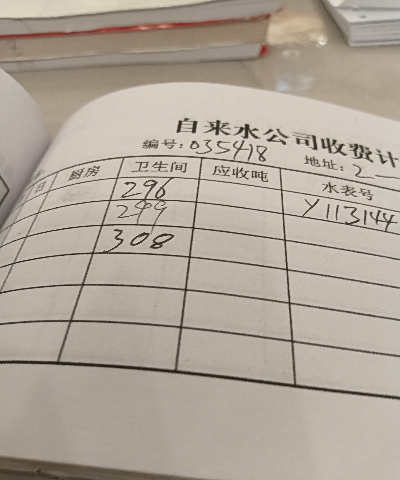 自来水公司收费计
编号:035418 地址:2
日 厨房 卫生间 应收吨 水表号
296 Y113144
299
308